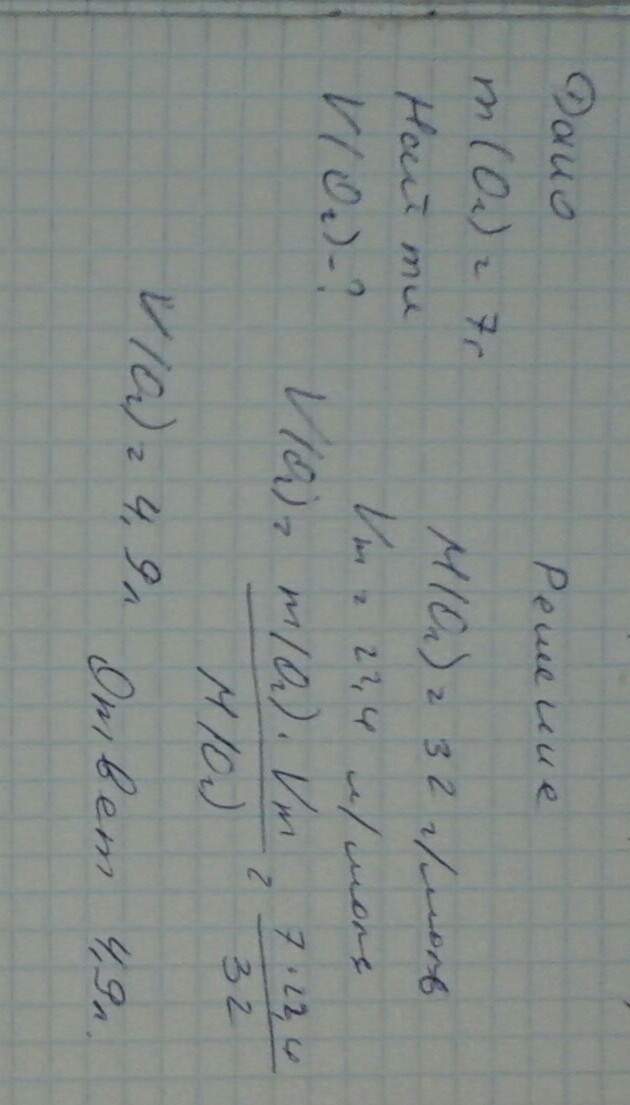 Дано
m(O₂) = 7г
Найти
V(O₂) - ?
Решение
M(O₂) = 32 г/моль
Vm = 22,4 л/моль
V(O₂) = m(O₂) · Vm / M(O₂) = 7 · 22,4 / 32
V(O₂) = 4,9л
Ответ 4,9л.